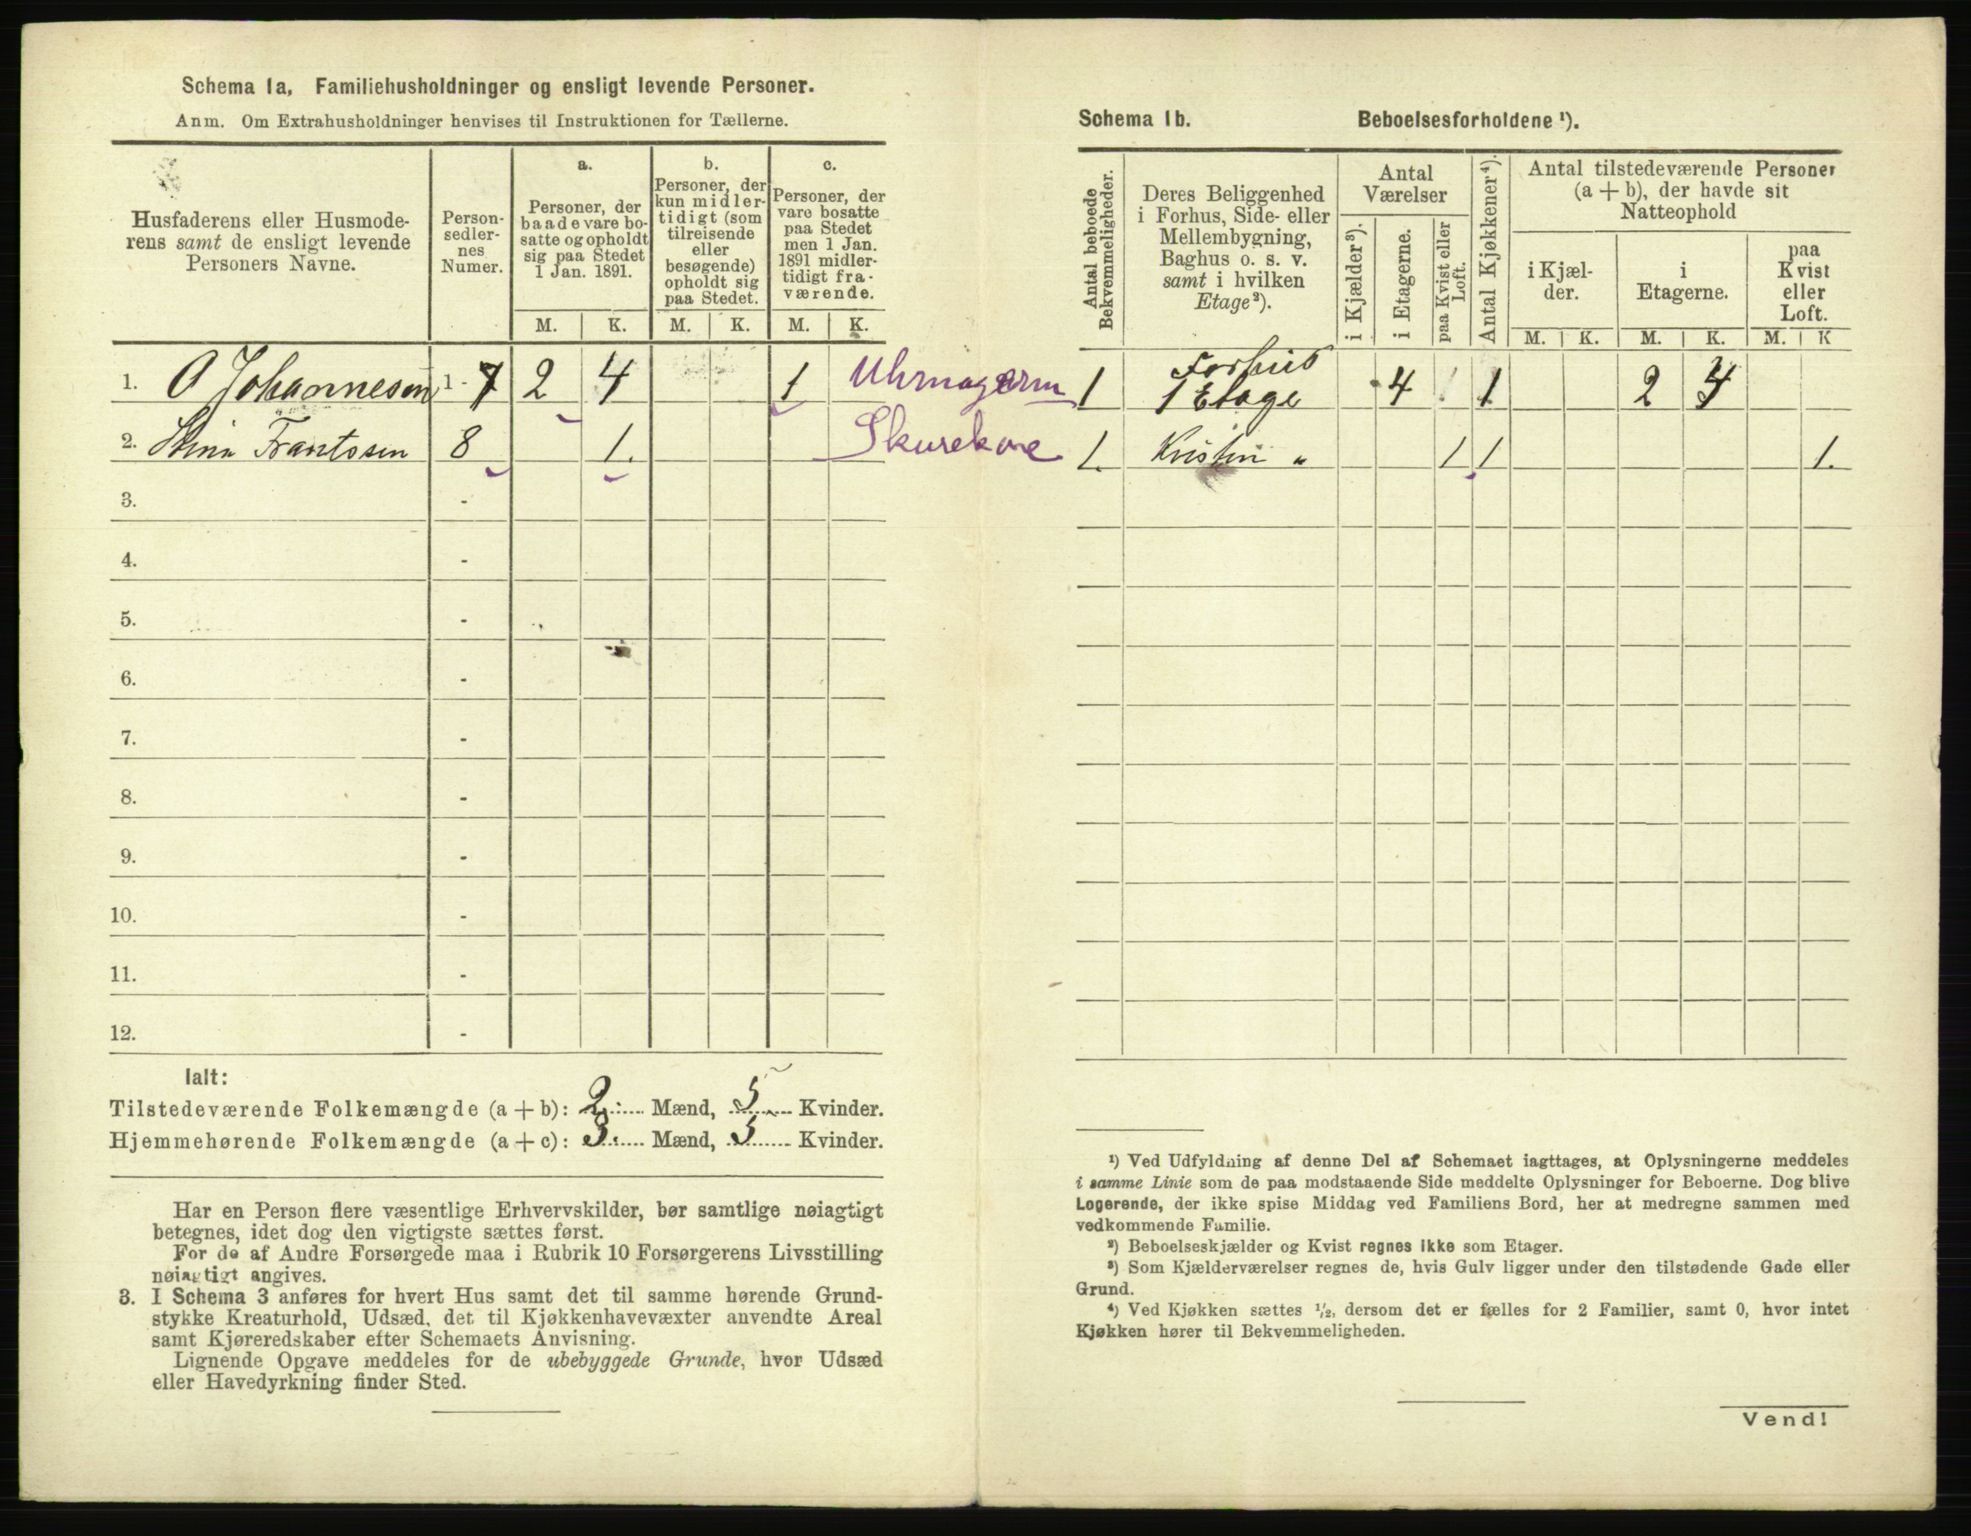 Schema 1a, Familiehusholdninger og ensligt levende Personer.
Anm. Om Extrahusholdninger henvises til Instruktionen for Tællerne.
Husfaderens eller Husmode-
rens samt de ensligt levende
Personers Navne.
Person-
sedler-
nes
Numer.
a.
Personer, der
baade vare bo-
satte og opholdt
sig paa Stedet
1 Jan. 1891.
b.
Personer, der
kun midler-
tidigt (som
tilreisende
eller
besøgende)
opholdt sig
paa Stedet.
c.
Personer, der
vare bosatte
paa Stedet
men 1 Jan.
1891 midler-
tidigt fra-
værende.
M. K. M. K. M. K.
1. O Johannesen 1 - 7 2 4 1 Uhrmagerm
2. Stina Frantssen 8 1. Skurekone
3. -
4. -
5. -
6. -
7. -
8. -
9. -
10. -
11. -
12. -
Ialt:
Tilstedeværende Folkemængde (a + b): 2 Mænd, 5 Kvinder.
Hjemmehørende Folkemængde (a + c): 3. Mænd, 5 Kvinder.
Har en Person flere væsentlige Erhvervskilder, bør samtlige nøiagtigt
betegnes, idet dog den vigtigste sættes først.
For de af Andre Forsørgede maa i Rubrik 10 Forsørgerens Livsstilling
nøiagtigt angives.
3. I Schema 3 anføres for hvert Hus samt det til samme hørende Grund-
stykke Kreaturhold, Udsæd, det til Kjøkkenhavevæxter anvendte Areal
samt Kjøreredskaber efter Schemaets Anvisning.
Lignende Opgave meddeles for de ubebyggede Grunde, hvor Udsæd
eller Havedyrkning finder Sted.
Schema 1b. Beboelsesforholdene ¹).
Antal beboede
Bekvemmeligheder.
Deres Beliggenhed
i Forhus, Side- eller
Mellembygning,
Baghus o. s. v.
samt i hvilken
Etage²).
Antal
Værelser
i Kjælder³).
i Etagerne.
paa Kvist eller
Loft.
Antal Kjøkkener⁴).
Antal tilstedeværende Personer
(a + b), der havde sit
Natteophold
i Kjæl-
der.
i
Etagerne.
paa
Kvist
eller
Loft.
M. K. M. K. M. K
Forhus
1 1 Etage 4 1 2 4
1. Kvisten " 1 1 1.
¹) Ved Udfyldning af denne Del af Schemaet iagttages, at Oplysningerne meddeles
i samme Linie som de paa modstaaende Side meddelte Oplysninger for Beboerne. Dog blive
Logerende, der ikke spise Middag ved Familiens Bord, her at medregne sammen med
vedkommende Familie.
²) Beboelseskjælder og Kvist regnes ikke som Etager.
³) Som Kjælderværelser regnes de, hvis Gulv ligger under den tilstødende Gade eller
Grund.
⁴) Ved Kjøkken sættes ¹/₂, dersom det er fælles for 2 Familier, samt 0, hvor intet
Kjøkken hører til Bekvemmeligheden.
Vend!